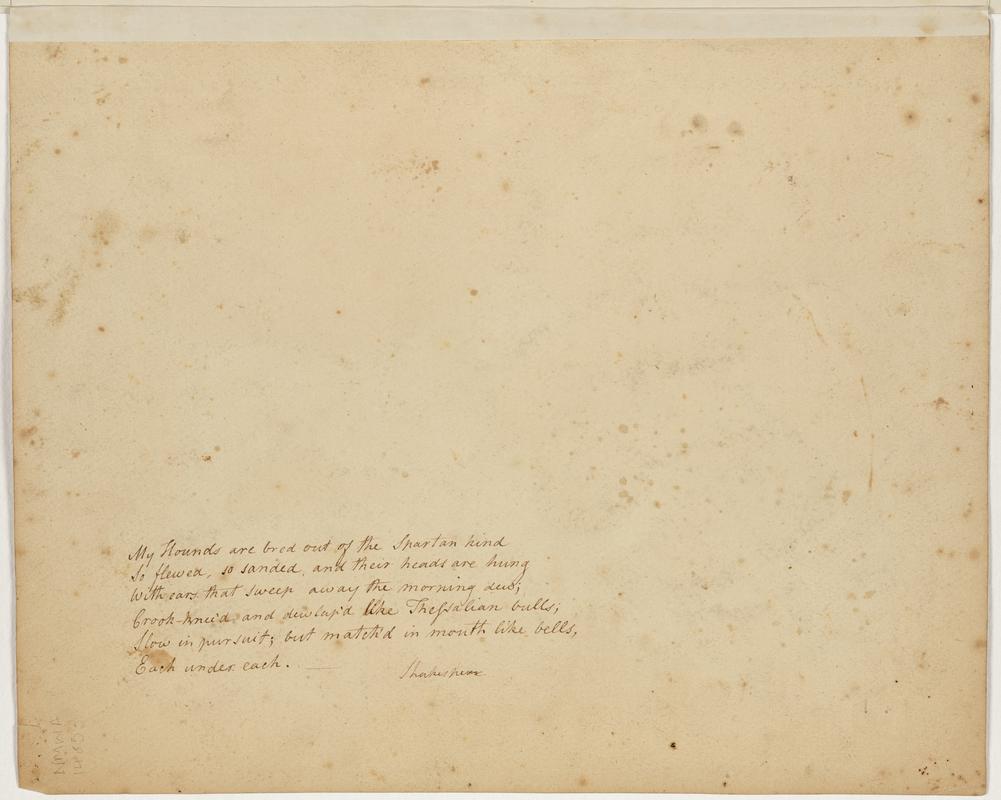 My Hounds are bred out of the Spartan kind
So flewed, so sanded, and their heads are hung
With ears that sweep away the morning dew;
Crook-knei'd and dewlap'd like Thessalian bulls;
Slow in pursuit; but match'd in mouth like bells,
Each under each. —
Shakespear
NMWA